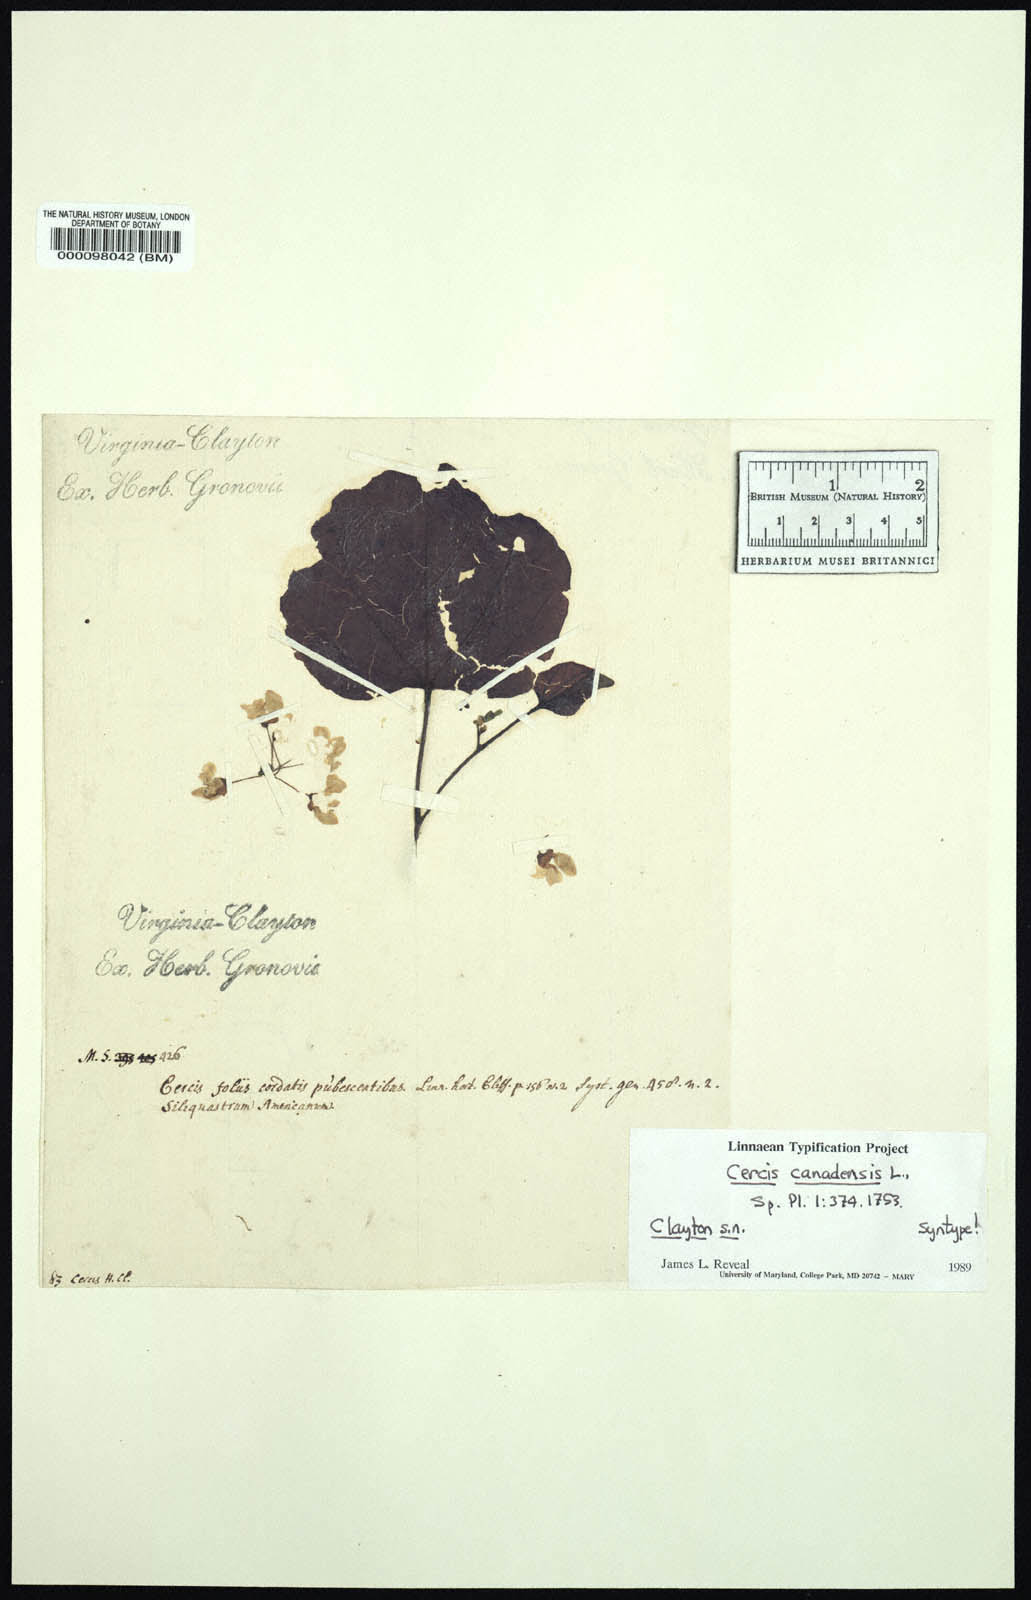 THE NATURAL HISTORY MUSEUM, LONDON
DEPARTMENT OF BOTANY
000098042 (BM)
Virginia-Clayton
Ex. Herb. Gronovii
1 2
BRITISH MUSEUM (NATURAL HISTORY)
1 2 3 4 5
HERBARIUM MUSEI BRITANNICI
Virginia-Clayton
Ex. Herb. Gronovii
M. S. 426
Cercis foliis cordatis pubescentibus Linn. hort. Cliff. p. 156 n. 2 Syst. gen. 458. n. 2.
Siliquastrum Americanum
Linnaean Typification Project
Cercis canadensis L.,
Sp. Pl. 1:374. 1753.
Clayton s.n. Syntype!
James L. Reveal 1989
University of Maryland, College Park, MD 20742 – MARY
83 Cercis H. Cl.